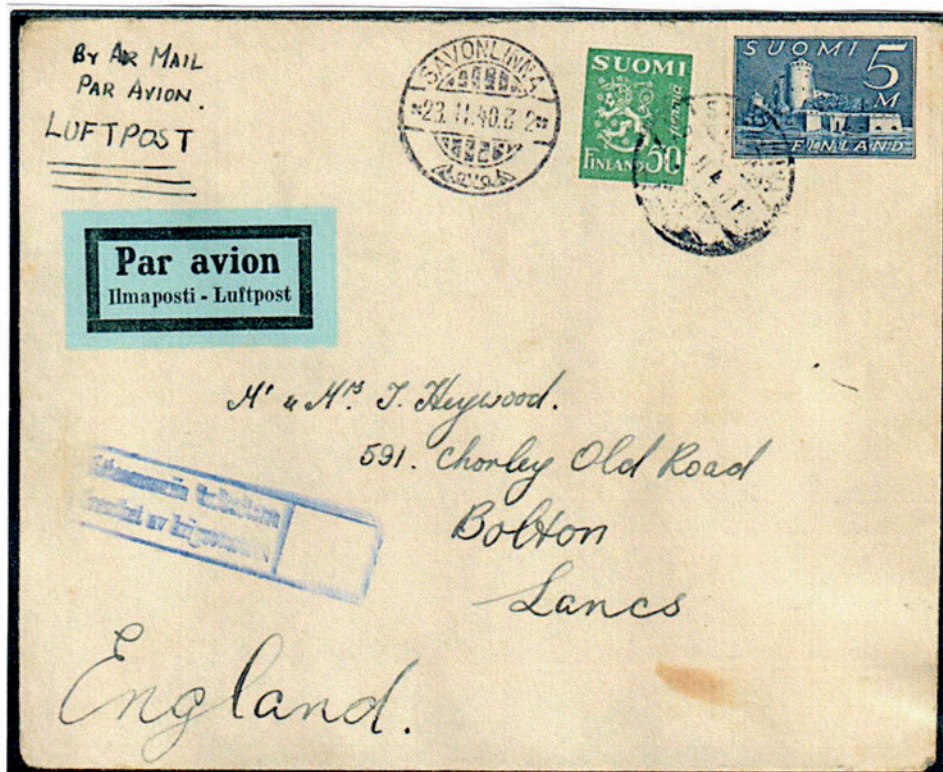 By Air Mail
Par Avion.
LUFTPOST
SAVONLINNA
23. II. 40.
SUOMI
FINLAND 50
SUOMI 5
M
FINLAND
Par avion
Ilmaposti - Luftpost
Mr & Mrs. J. Heywood.
591. Chorley Old Road
Bolton
Lancs
av
England.